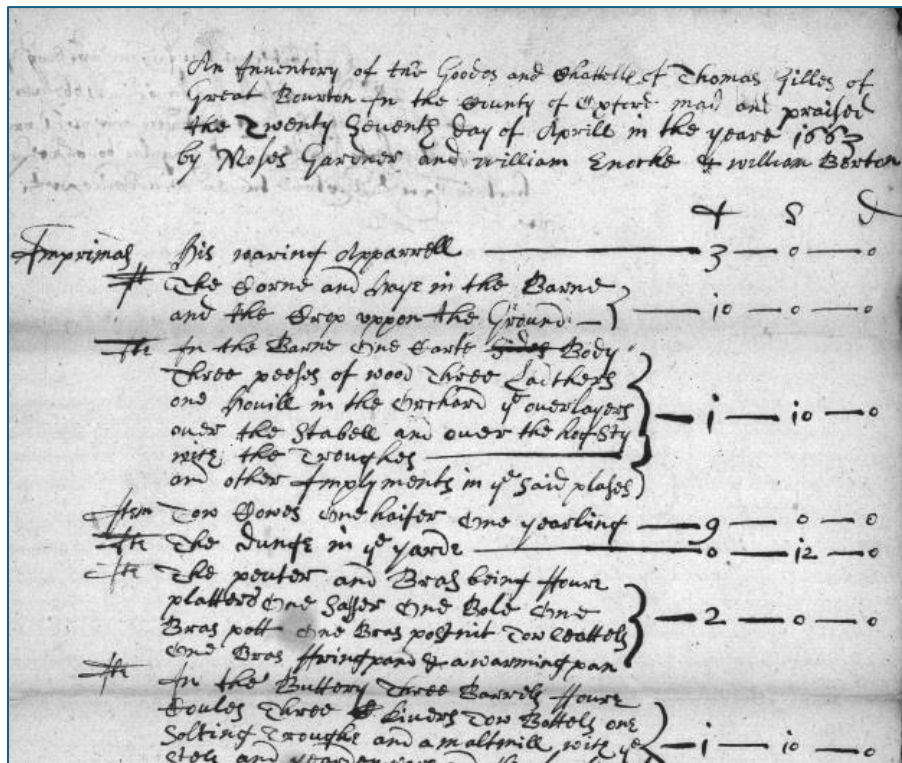 An Inventory of the Goodes and Chattells of Thomas Gilles of
Great Bourton In the County of Oxford mad and praised
the Twenty Seventh day of Aprill in the yeare 1663
by Moses Gardner and William Enocke & William Borton
£ S d
Imprimas his waring Apparrell 3 — 0 — 0
It The Corne and haye in the Barne
and the Crop uppon the Ground 10 — 0 — 0
Ite In the Barne One Carte Body
Three peeses of wood Three Ladthers
one hovill in the Orchard ye overlayers
over the Stabell and over the hogsty 1 — 10 — 0
with the Troughes
and other Implyments in ye said plases
Item Tow Cowes One haifer One yearling 9 — 0 — 0
Ite The dunge in ye yarde 0 — 12 — 0
Ite The peuter and Bras being ffoure
platters One Saser One Bole One
Bras pott One Bras postnit Tow Ceattels 2 — 0 — 0
One Bras ffringpand & a warming pan
Ite In the Buttery Three Barrels ffoure
Coules Three Kivers Tow Bottels one
Solting Troughe and a maltmill with ye 1 — 10 — 0
and